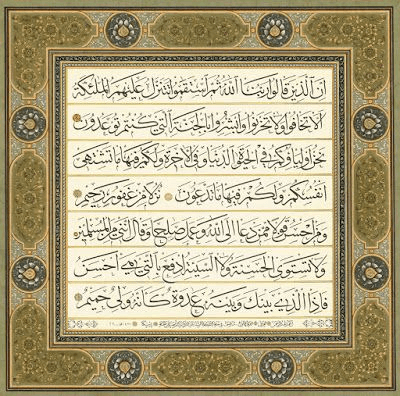 اِنَّ الَّذ۪ينَ قَالُوا رَبُّنَا اللّٰهُ ثُمَّ اسْتَقَامُوا تَتَنَزَّلُ عَلَيْهِمُ الْمَلٰٓئِكَةُ
اَلَّا تَخَافُوا وَلَا تَحْزَنُوا وَاَبْشِرُوا بِالْجَنَّةِ الَّت۪ي كُنْتُمْ تُوعَدُونَ
نَحْنُ اَوْلِيَٓاؤُ۬كُمْ فِي الْحَيٰوةِ الدُّنْيَا وَفِي الْاٰخِرَةِ وَلَكُمْ ف۪يهَا مَا تَشْتَه۪ٓي
اَنْفُسُكُمْ وَلَكُمْ ف۪يهَا مَا تَدَّعُونَ نُزُلًا مِنْ غَفُورٍ رَح۪يمٍ
وَمَنْ اَحْسَنُ قَوْلًا مِمَّنْ دَعَٓا اِلَى اللّٰهِ وَعَمِلَ صَالِحًا وَقَالَ اِنَّن۪ي مِنَ الْمُسْلِم۪ينَ
وَلَا تَسْتَوِي الْحَسَنَةُ وَلَا السَّيِّئَةُ اِدْفَعْ بِالَّت۪ي هِيَ اَحْسَنُ
فَاِذَا الَّذ۪ي بَيْنَكَ وَبَيْنَهُ عَدَاوَةٌ كَاَنَّهُ وَلِيٌّ حَم۪يمٌ